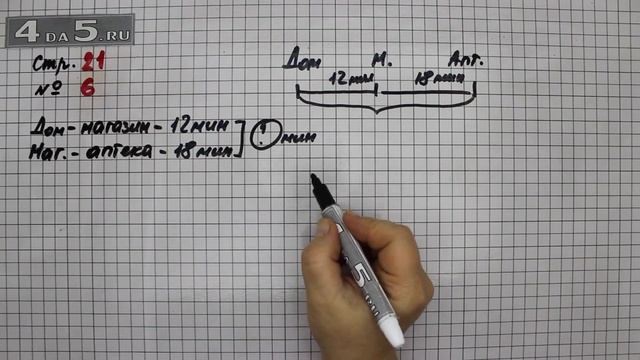 4DA5.RU
Стр. 21
№ 6
Дом М. Апт.
12мин 18мин
Дом - магазин - 12мин
Маг. - аптека - 18мин
? мин
5